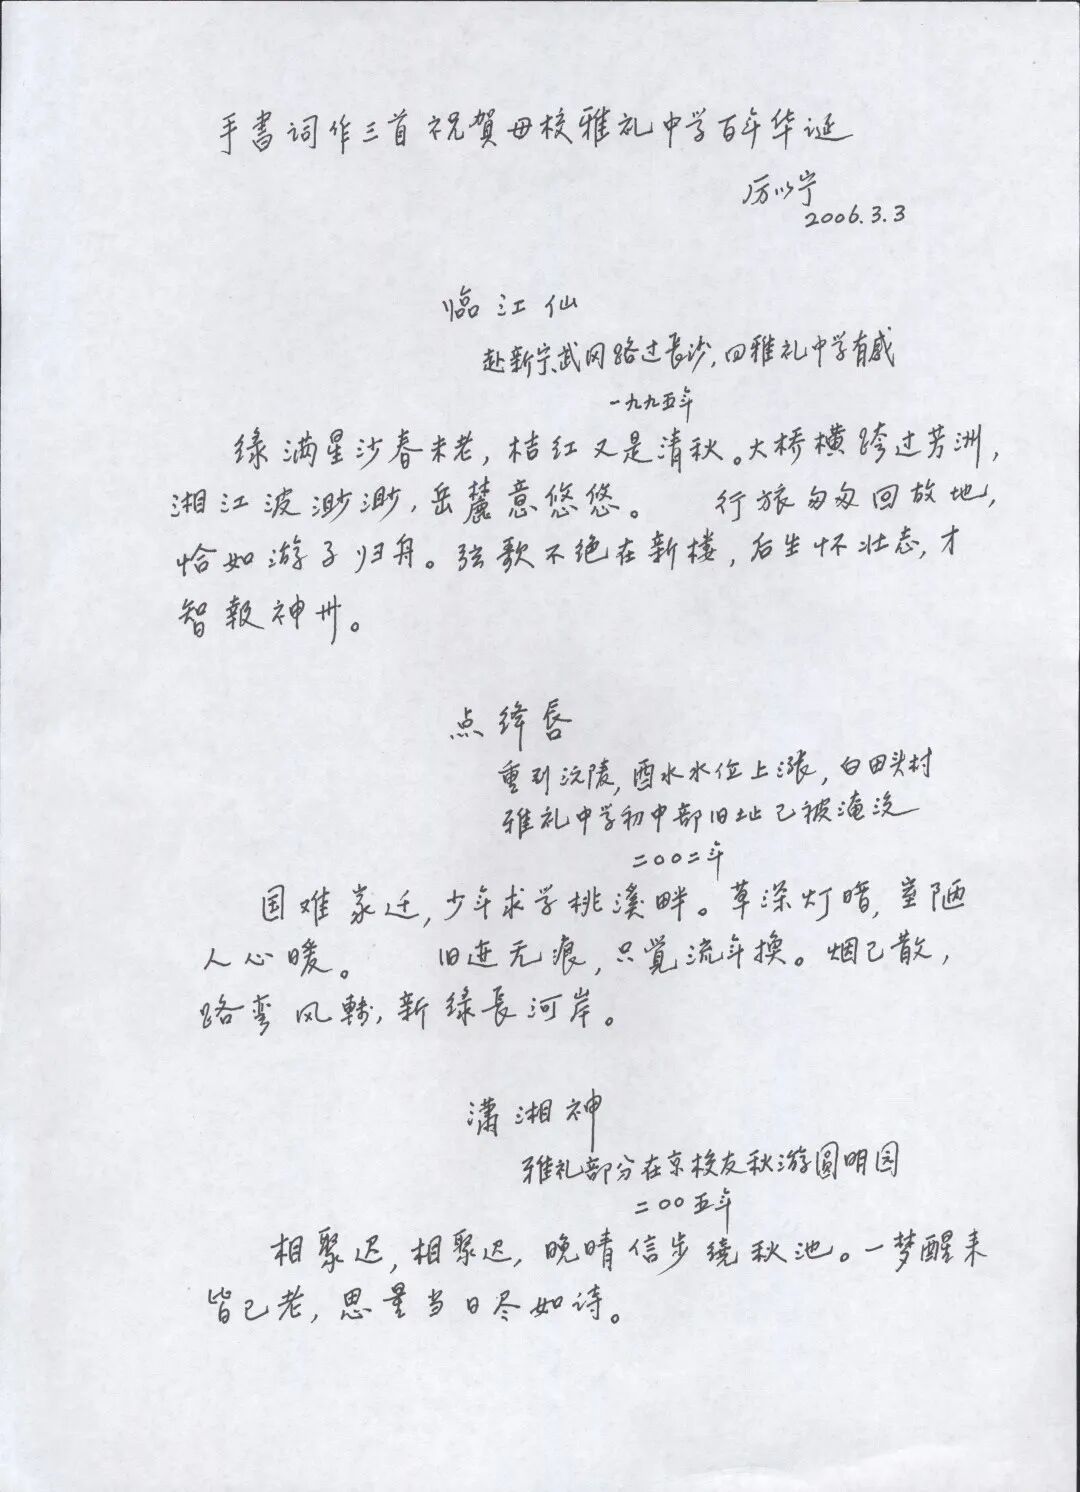 手書词作三首祝賀母校雅礼中学百年华诞
厉以宁
2006.3.3
临江仙
赴新宁、武冈路过長沙,回雅礼中学有感
一九九五年
绿满星沙春未老,桔红又是清秋。大桥横跨过芳洲,
湘江波渺渺,岳麓意悠悠。 行旅匆匆回故地,
恰如游子归舟。弦歌不绝在新楼,后生怀壮志,才
智報神州。
点绛唇
重到沅陵,酉水水位上漲,白田头村
雅礼中学初中部旧址已被淹没
二〇〇二年
国难家迁,少年求学桃溪畔。草深灯暗,室陋
人心暖。 旧迹无痕,只覺流年换。烟已散,
路弯风轉,新绿長河岸。
潇湘神
雅礼部分在京校友秋游圆明园
二〇〇五年
相聚迟,相聚迟,晚晴信步绕秋池。一梦醒来
皆已老,思量当日尽如诗。